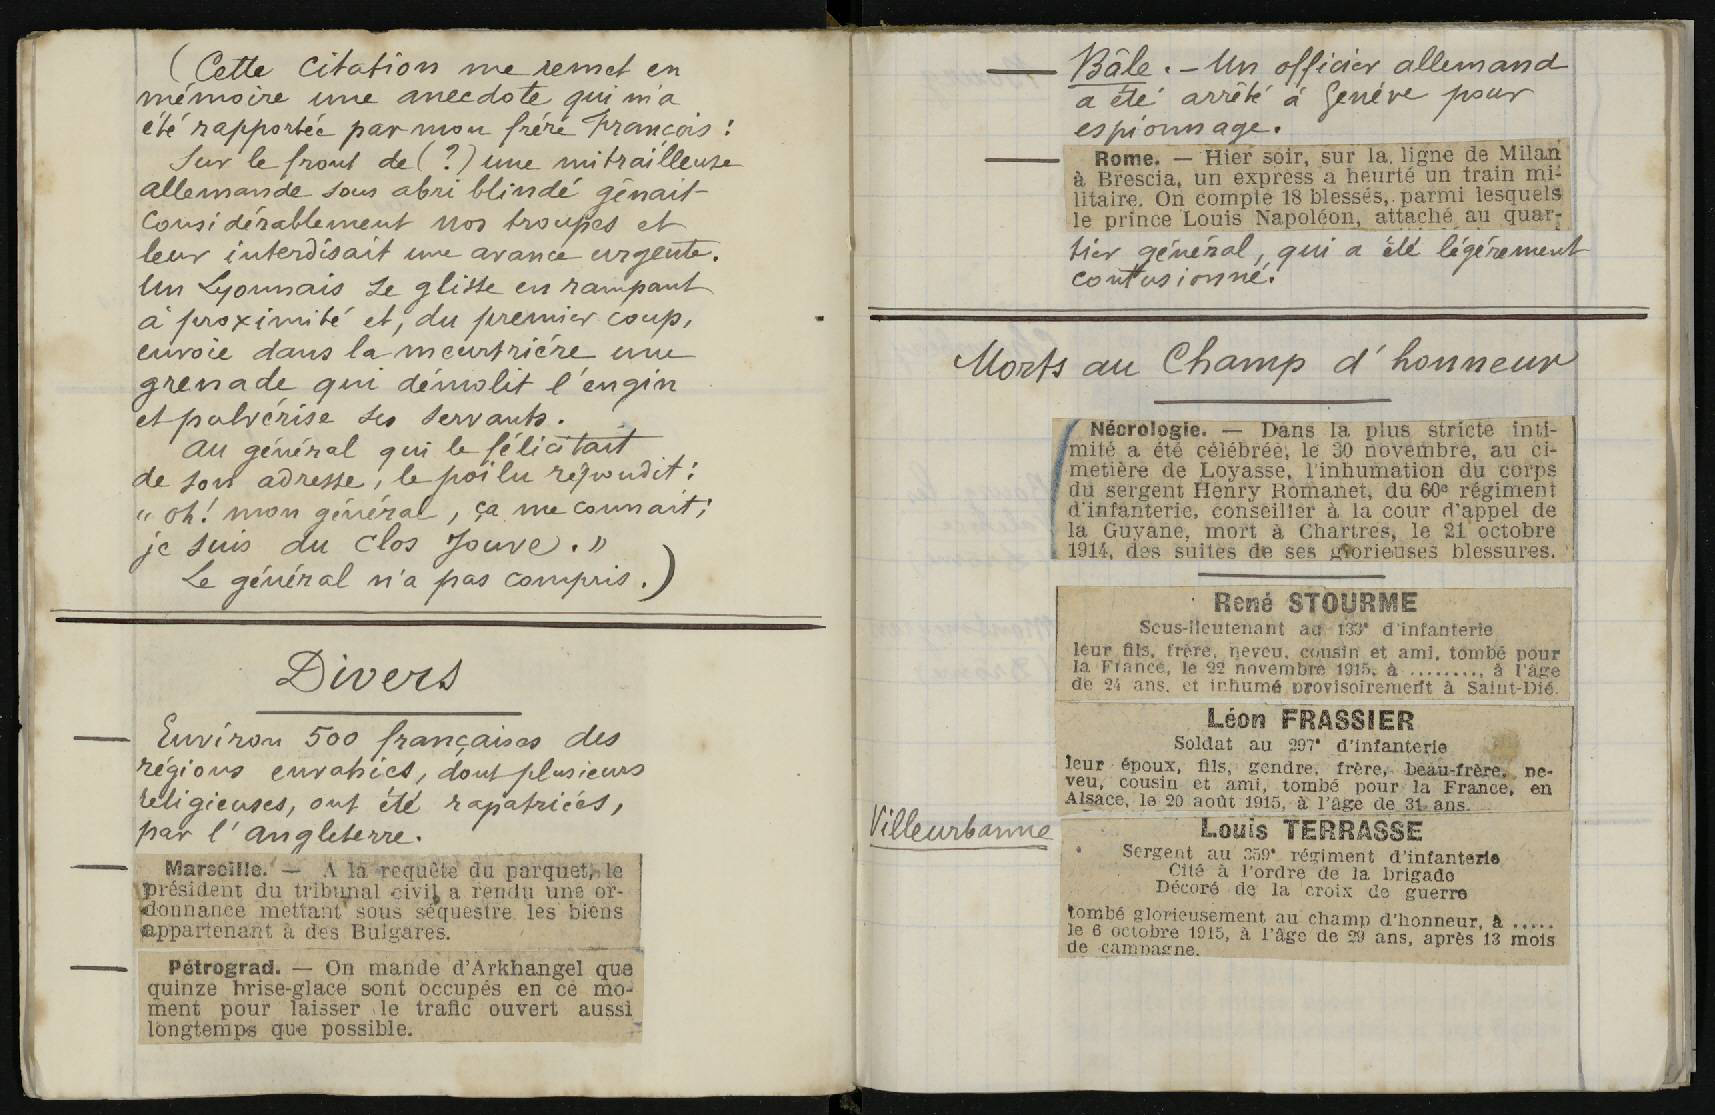 (Cette citation me remet en
mémoire une anecdote qui m'a
été rapportée par mon frère François :
Sur le front de (?) une mitrailleuse
allemande sous abri blindé gênait
considérablement nos troupes et
leur interdisait une avance urgente.
Un Lyonnais se glisse en rampant
à proximité et, du premier coup,
envoie dans la meurtrière une
grenade qui démolit l'engin
et pulvérise ses servants.
Au général qui le félicitait
de son adresse, le poilu répondit :
" oh ! mon général, ça me connait ;
je suis du Clos Jouve. "
Le général n'a pas compris.)
Divers
— Environ 500 françaises des
régions envahies, dont plusieurs
religieuses, ont été rapatriées,
par l'Angleterre.
— Marseille. — A la requête du parquet, le
président du tribunal civil a rendu une or-
donnance mettant sous séquestre les biens
appartenant à des Bulgares.
— Pétrograd. — On mande d'Arkhangel que
quinze brise-glace sont occupés en ce mo-
ment pour laisser le trafic ouvert aussi
longtemps que possible.
— Bâle. - Un officier allemand
a été arrêté à Genève pour
espionnage.
— Rome. — Hier soir, sur la ligne de Milan
à Brescia, un express a heurté un train mi-
litaire. On compte 18 blessés, parmi lesquels
le prince Louis Napoléon, attaché au quar-
tier général, qui a été légèrement
contusionné.
Morts au Champ d'honneur
Nécrologie. — Dans la plus stricte inti-
mité a été célébrée, le 30 novembre, au ci-
metière de Loyasse, l'inhumation du corps
du sergent Henry Romanet, du 60e régiment
d'infanterie, conseiller à la cour d'appel de
la Guyane, mort à Chartres, le 21 octobre
1914, des suites de ses glorieuses blessures.
René STOURME
Sous-lieutenant au 133e d'infanterie
leur fils, frère, neveu, cousin et ami, tombé pour
la France, le 22 novembre 1915, à ........, à l'âge
de 24 ans, et inhumé provisoirement à Saint-Dié.
Léon FRASSIER
Soldat au 297e d'infanterie
leur époux, fils, gendre, frère, beau-frère, ne-
veu, cousin et ami, tombé pour la France, en
Alsace, le 20 août 1915, à l'âge de 31 ans.
Villeurbanne
Louis TERRASSE
Sergent au 359e régiment d'infanterie
Cité à l'ordre de la brigade
Décoré de la croix de guerre
tombé glorieusement au champ d'honneur, à .....
le 6 octobre 1915, à l'âge de 29 ans, après 13 mois
de campagne.